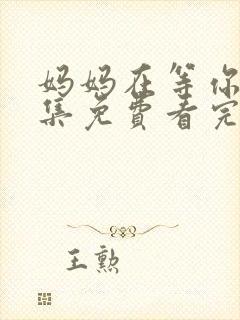 妈妈在等你
集免费看完
王勲